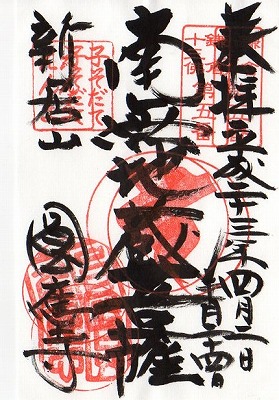 奉拝 平成二十三年四月二日
十三佛 第五番
南無地蔵菩薩
子そだて
新居山
圓應寺